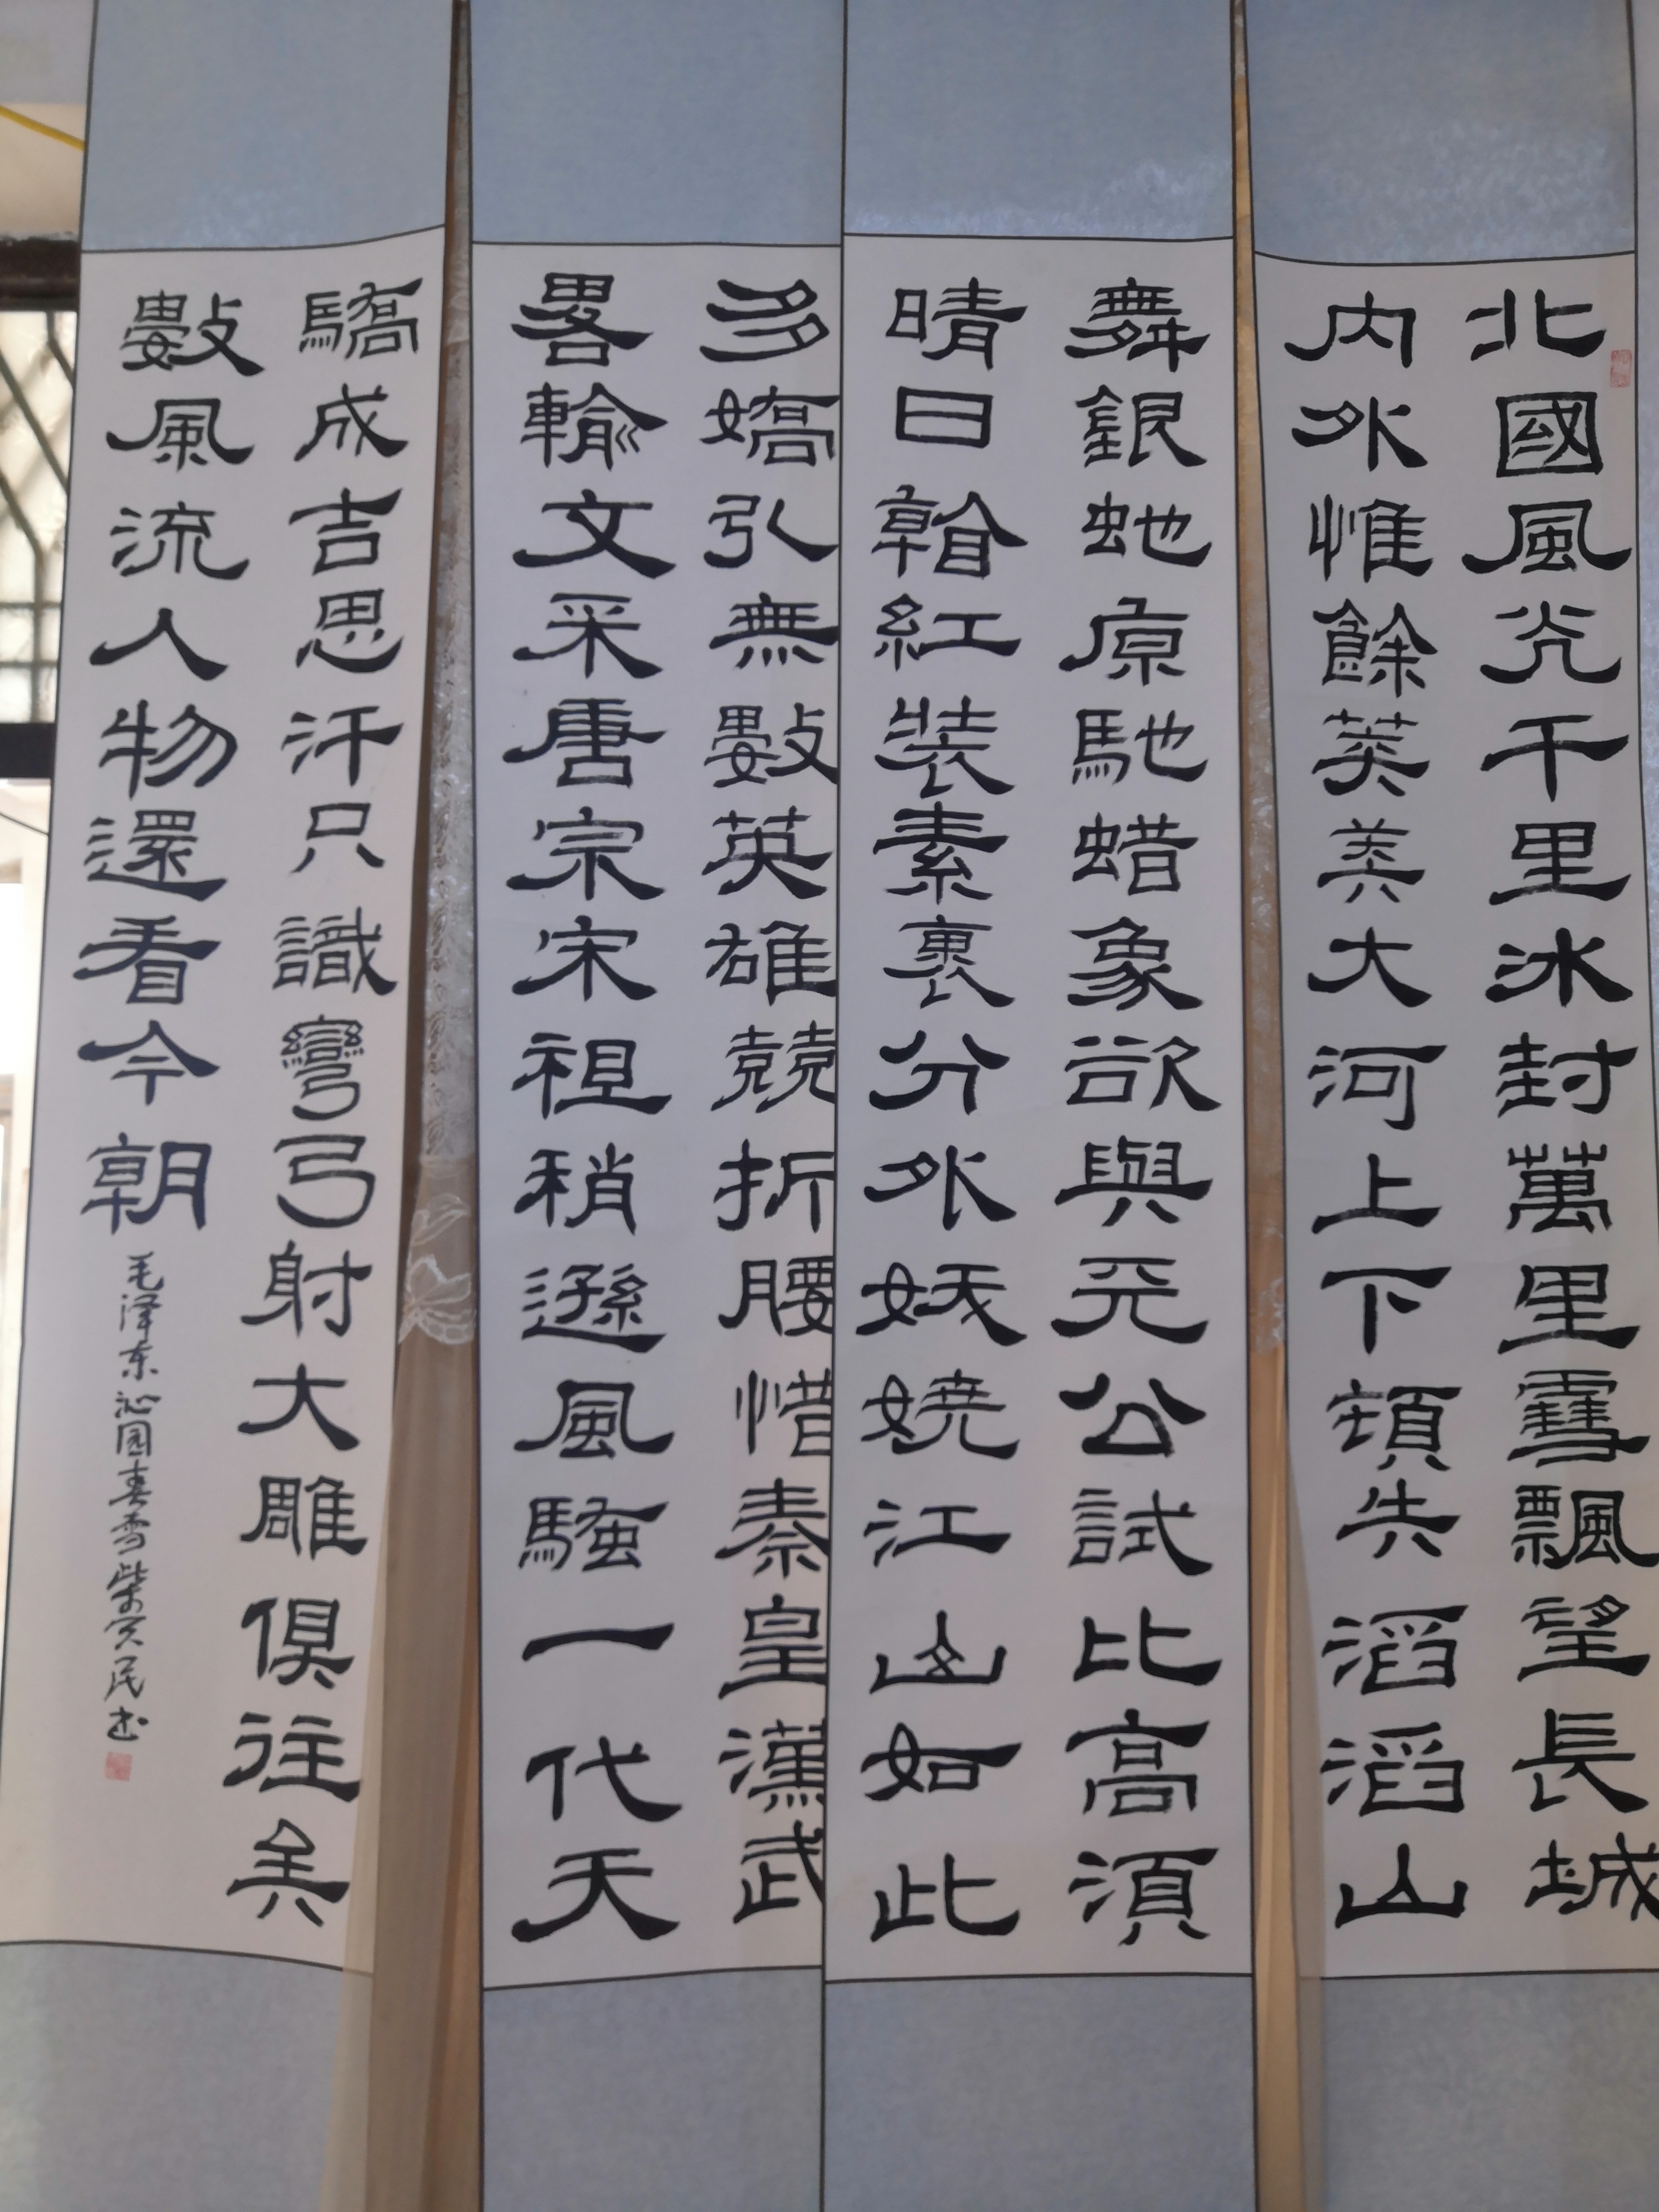 北國風光千里冰封萬里雪飄望長城
内外惟餘莽莽大河上下頓失滔滔山
舞銀蛇原馳蜡象欲與天公試比高須
晴日看紅装素裹分外妖嬈江山如此
多嬌引無數英雄競折腰惜秦皇漢武
畧輸文采唐宗宋祖稍遜風騷一代天
驕成吉思汗只識彎弓射大雕俱往矣
數風流人物還看今朝
毛泽东沁园春雪柴民书